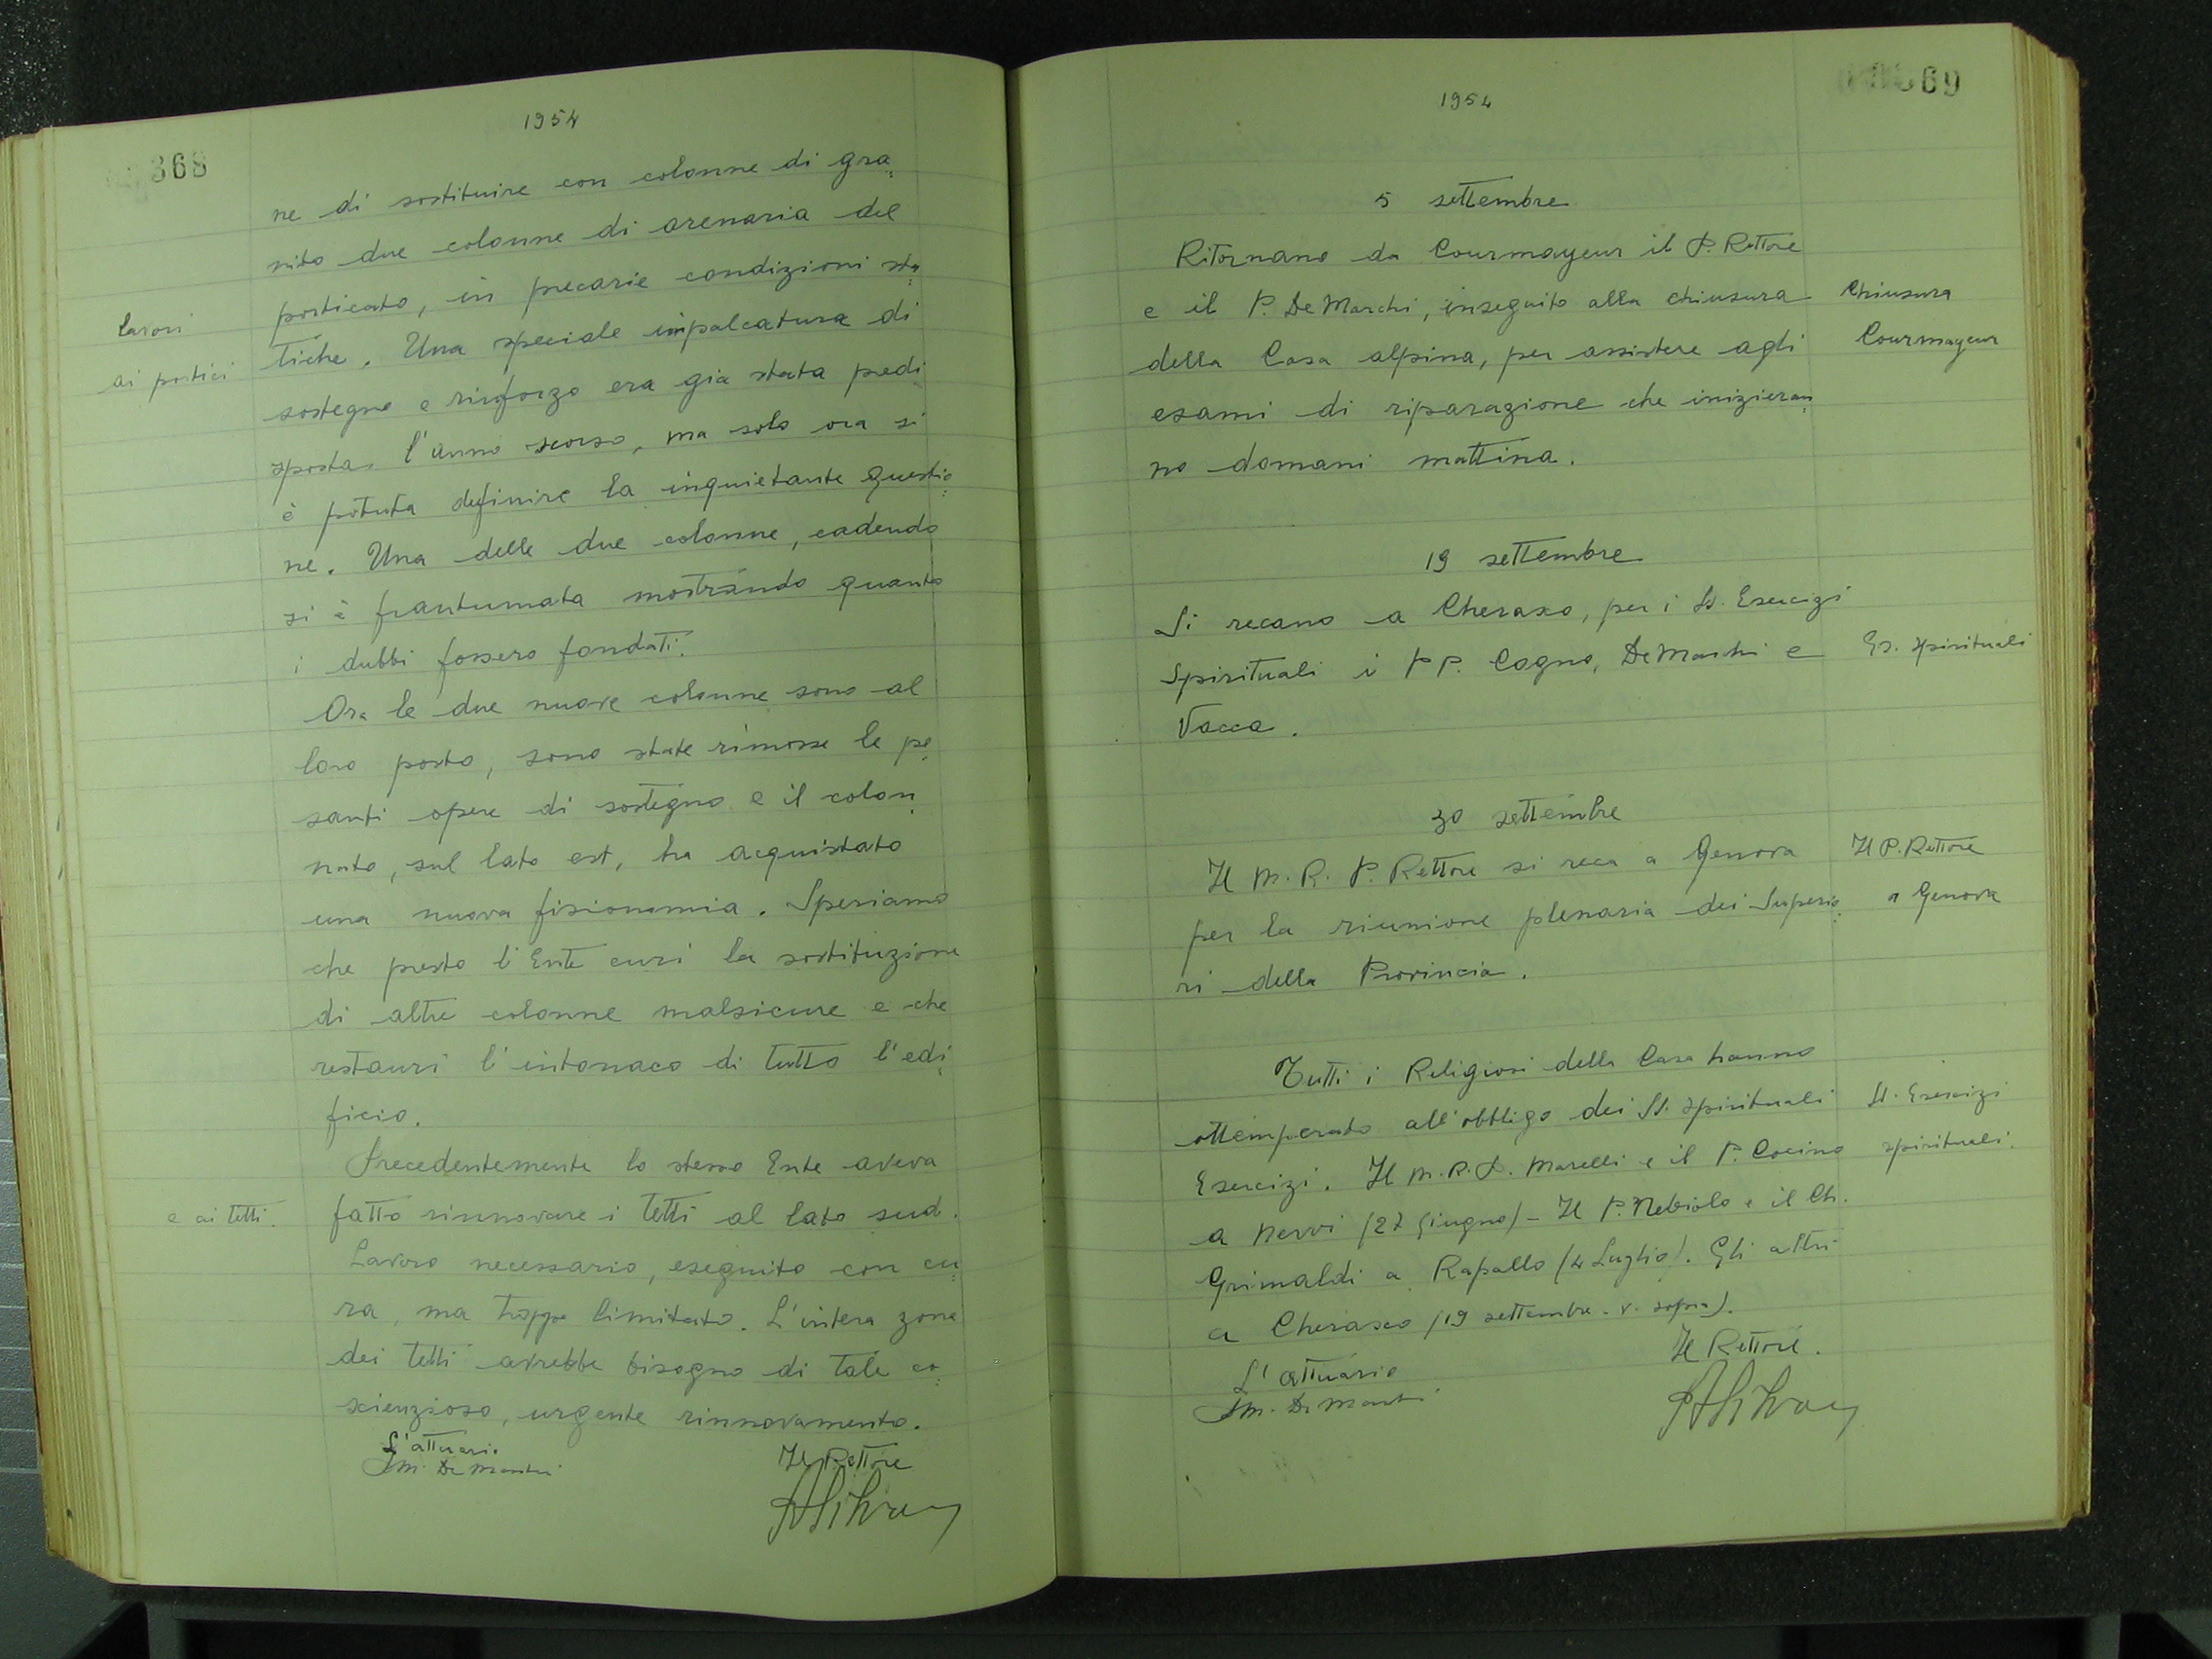 368
1954
ne di sostituire con colonne di gra=
nito due colonne di arenaria del
porticato, in precarie condizioni sta=
lavori
tiche. Una speciale impalcatura di
ai portici
sostegno e rinforzo era già stata predi
sposta l'anno scorso, ma solo ora si
è potuta definire la inquietante questio=
ne. Una delle due colonne, cadendo
si è frantumata mostrando quanto
i dubbi fossero fondati.
Ora le due nuove colonne sono al
loro posto, sono state rimosse le pe=
santi opere di sostegno e il colon=
nato, sul lato est, ha acquistato
una nuova fisionomia. Speriamo
che presto l'Ente curi la sostituzione
di altre colonne malsicure e che
restauri l'intonaco di tutto l'edi=
ficio.
Precedentemente lo stesso Ente aveva
e ai tetti.
fatto rinnovare i tetti al lato sud.
Lavoro necessario, eseguito con cu=
ra, ma troppo limitato. L'intera zona
dei tetti avrebbe bisogno di tale co=
scienzioso, urgente rinnovamento.
L'attuario
Il Rettore
P. M. De Marchi
69
1954
5 settembre
Ritornano da Courmayeur il P. Rettore
e il P. De Marchi, inseguito alla chiusura
Chiusura
della Casa alpina, per assistere agli
Courmayeur
esami di riparazione che inizieran=
no domani mattina.
19 settembre
Si recano a Cherasco, per i SS. Esercizi
Spirituali i PP. Cogno, De Marchi e
Es. spirituali
Vacca.
30 settembre
Il M. R. P. Rettore si reca a Genova
Il P. Rettore
per la riunione plenaria dei Superio=
a Genova
ri della Provincia.
Tutti i Religiosi della Casa hanno
ottemperato all'obbligo dei SS. spirituali
SS. Esercizi
Esercizi. Il M. R. P. Marelli e il P. Cocino
spirituali.
a Nervi (27 Giugno) - Il P. Nebiolo e il Ch.
Grimaldi a Rapallo (4 Luglio). Gli altri
a Cherasco (19 settembre. v. sopra).
Il Rettore.
L'attuario
P. M. De Marchi